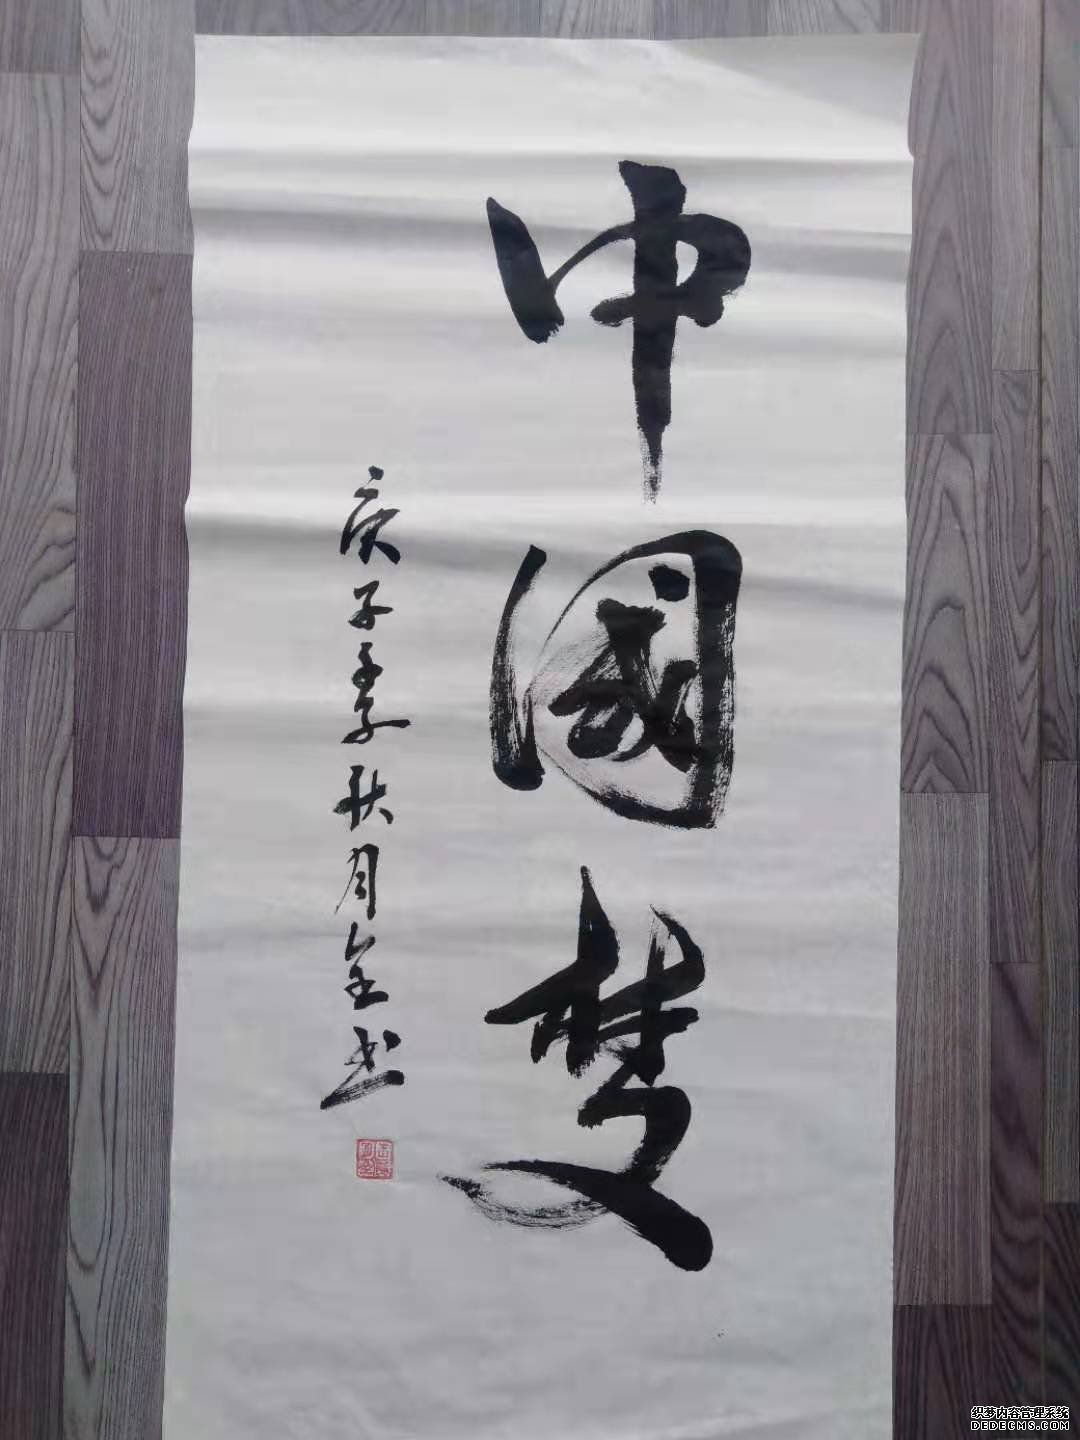 中國梦
庚子季秋月全书
织梦内容管理系统
DEDECMS.COM